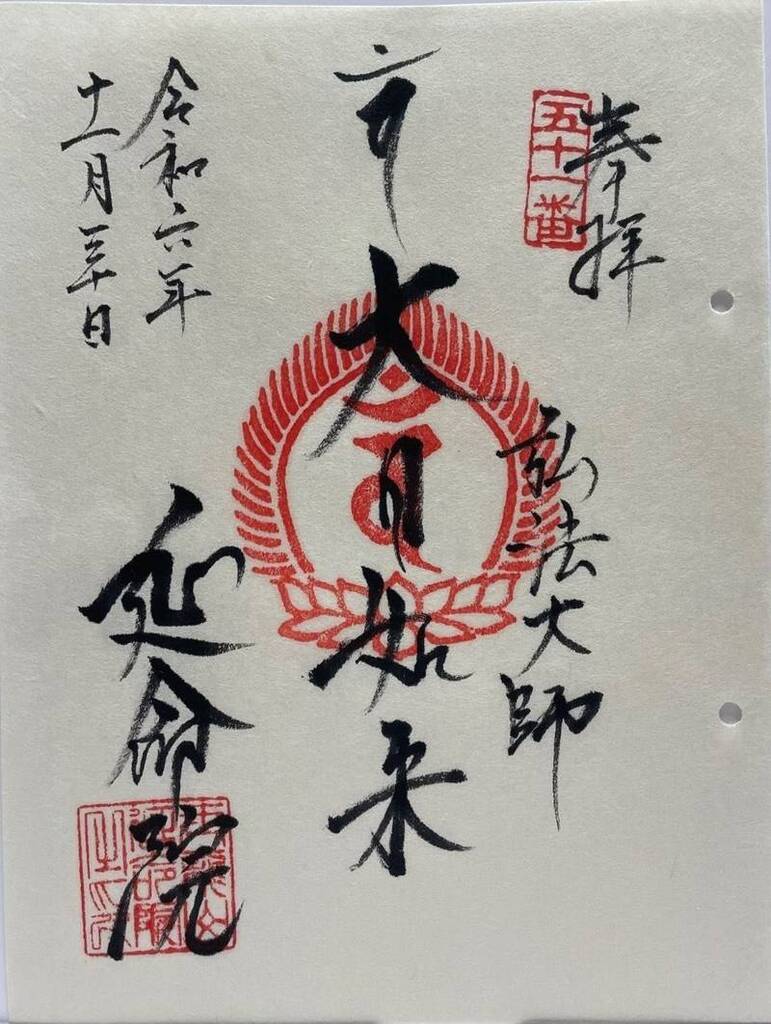 奉拝
五十一番
弘法大師
大日如来
延命院
令和六年
十一月三十日